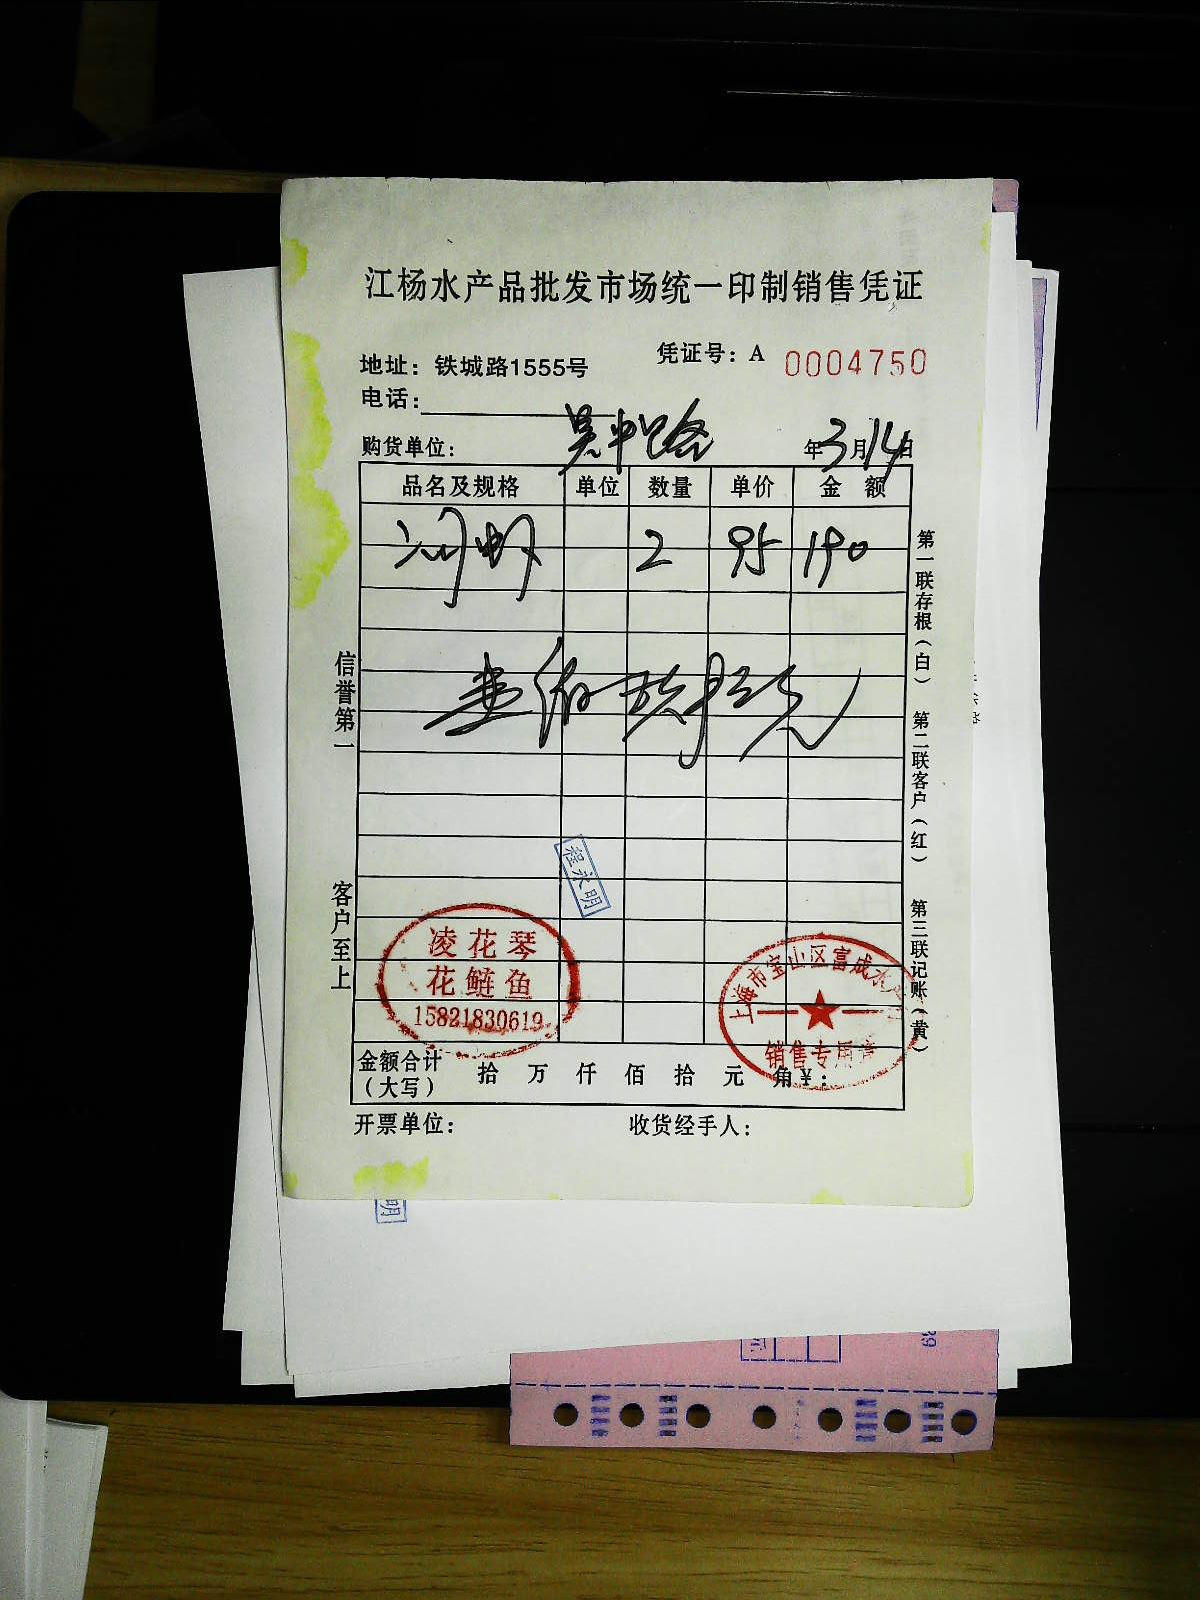 江杨水产品批发市场统一印制销售凭证
地址：铁城路1555号
凭证号：A 0004750
电话：
购货单位： 吴中路 年3月14日
品名及规格 单位 数量 单价 金额
河虾 2 95 190
壹佰玖拾元
第一联存根（白） 第二联客户（红） 第三联记账（黄）
信誉第一 客户至上
程永明
凌花琴
花鲢鱼
15821830619
上海市宝山区富成水
销售专用章
金额合计（大写） 拾 万 仟 佰 拾 元 角 ¥：
开票单位： 收货经手人：
明